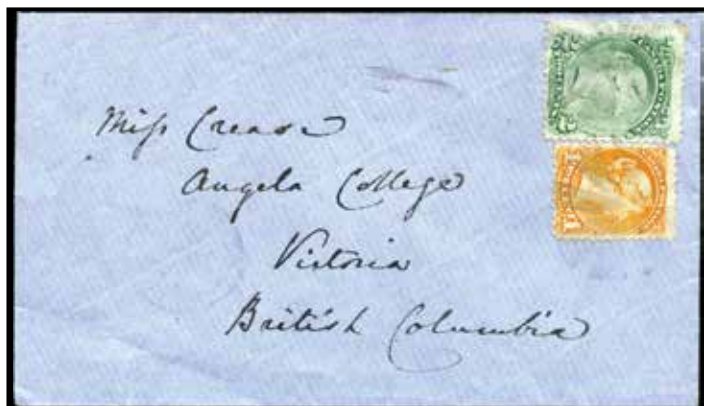 Miss Crease
Angela College
Victoria
British Columbia